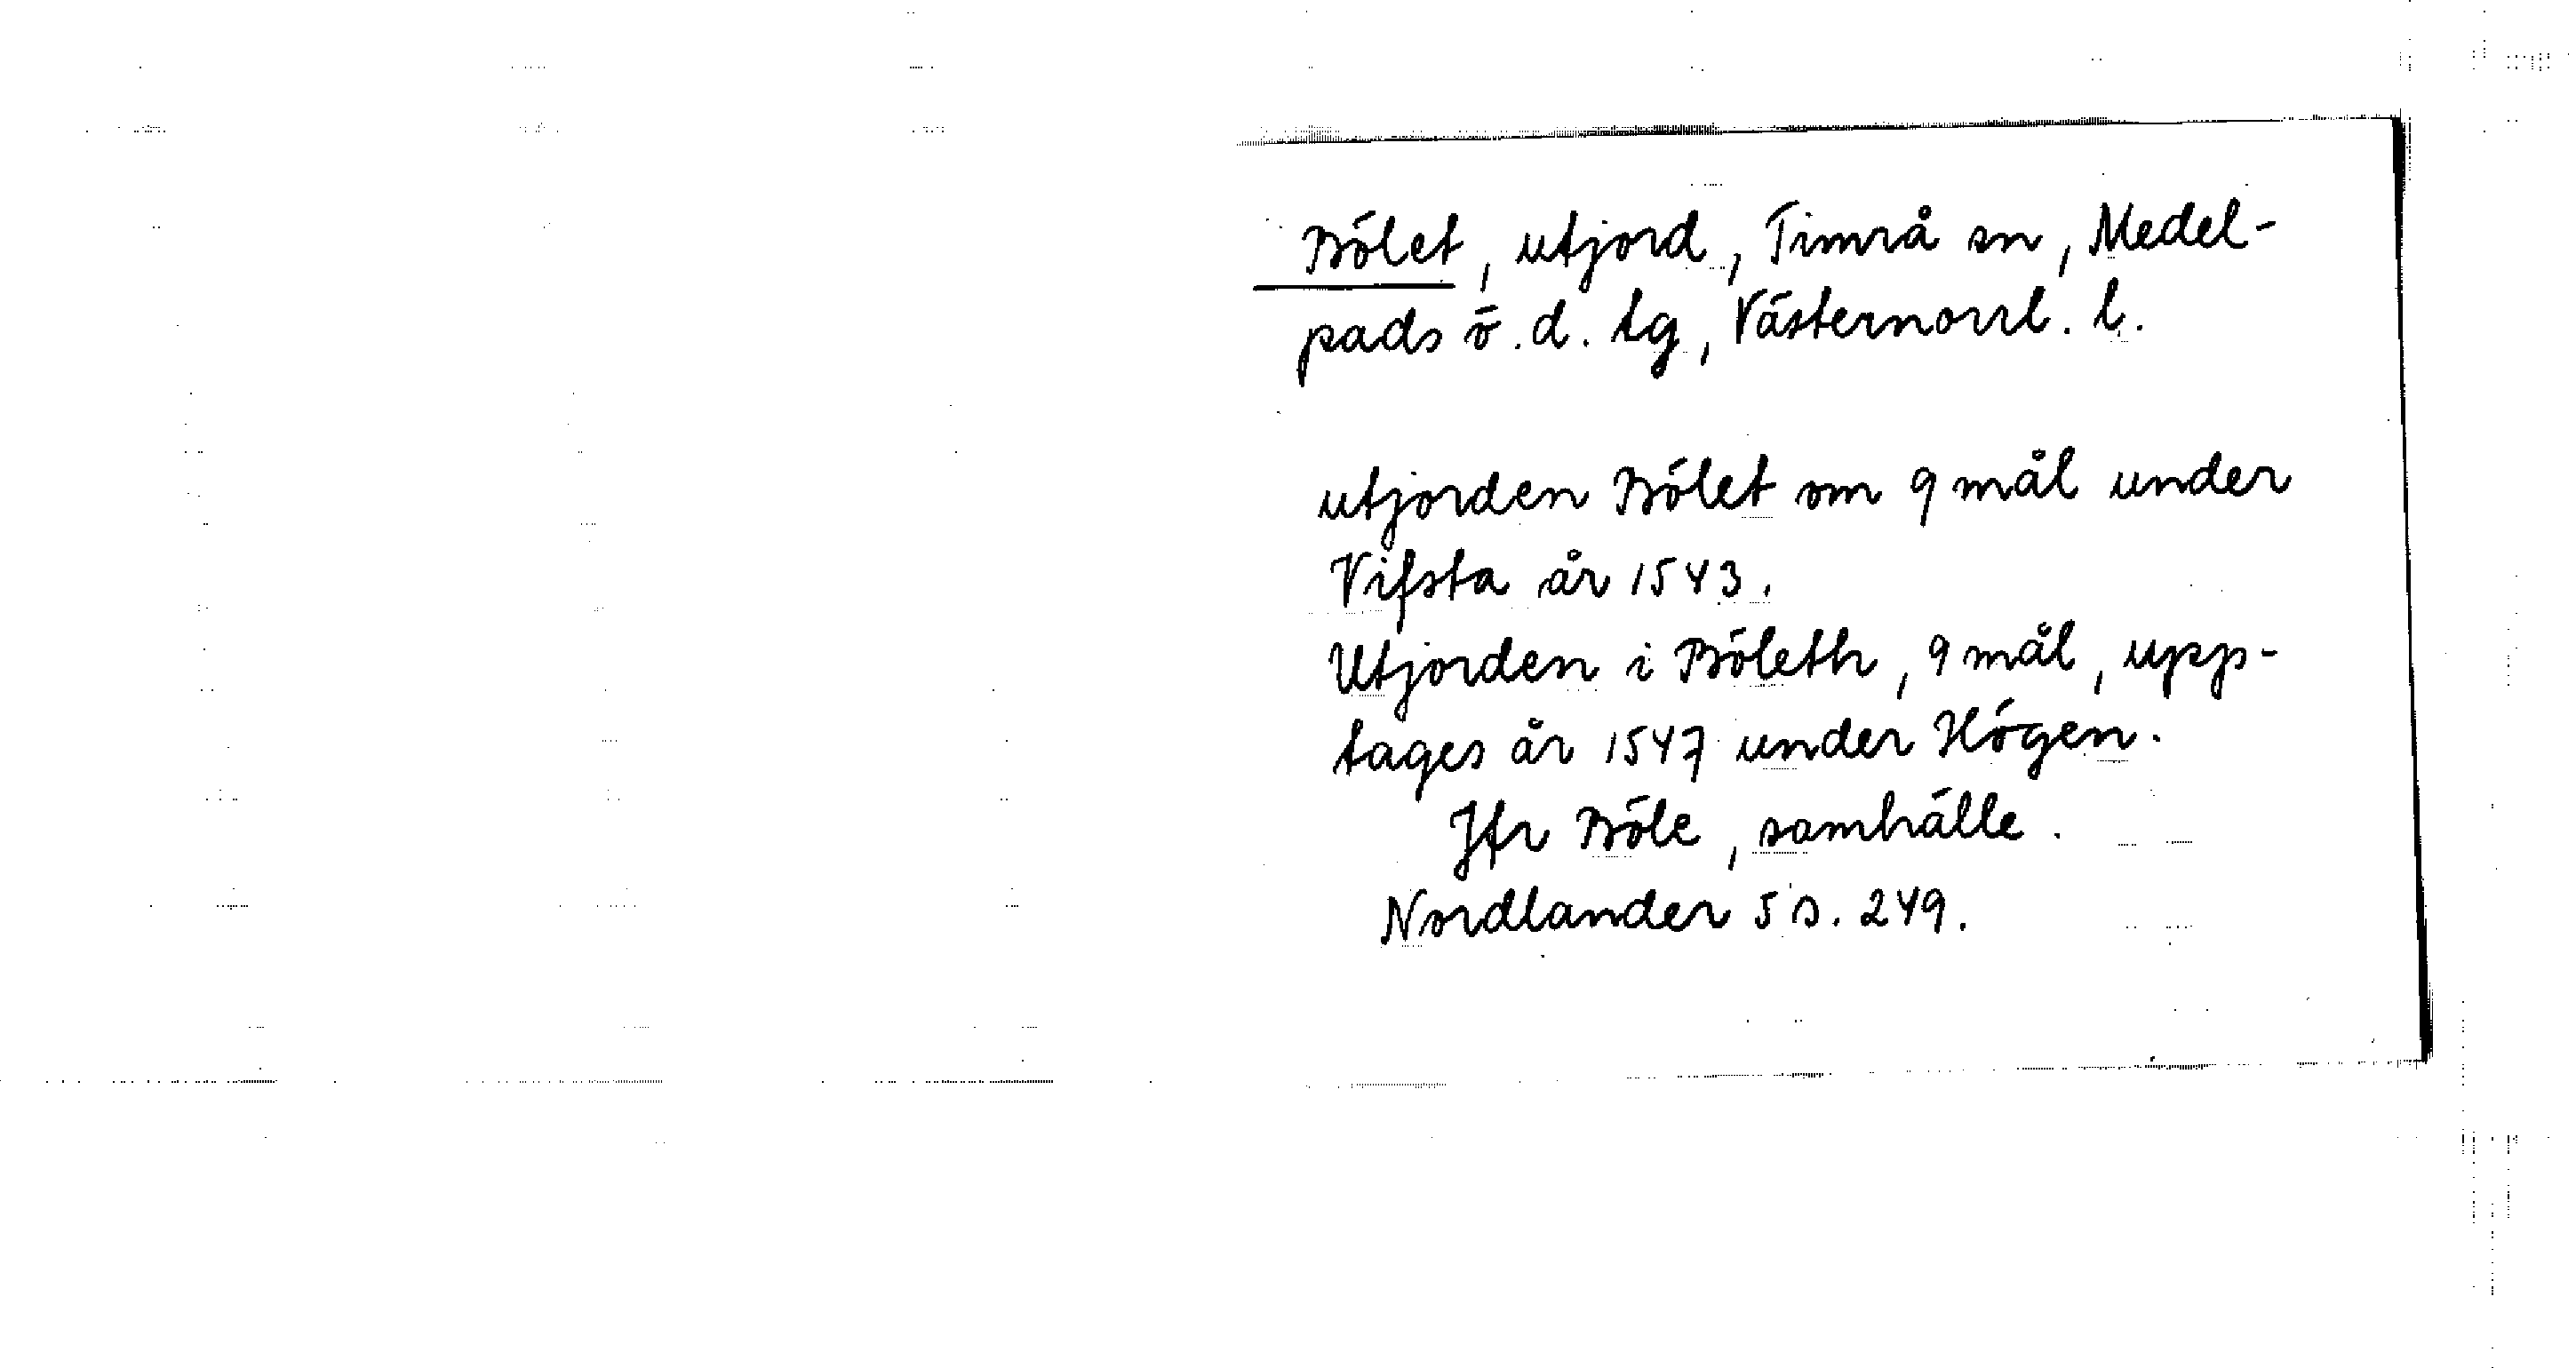 Bölet, utjord, Timrå sn, Medel-
pads ö.d. tg, Västernorrl. l.
utjorden Bölet om 9 mål under
Vifsta år 1543.
Utjorden i Böleth, 9 mål, upp-
tages år 1547 under Högen.
Jfr Böle, samhälle.
Nordlander 5 s. 249.